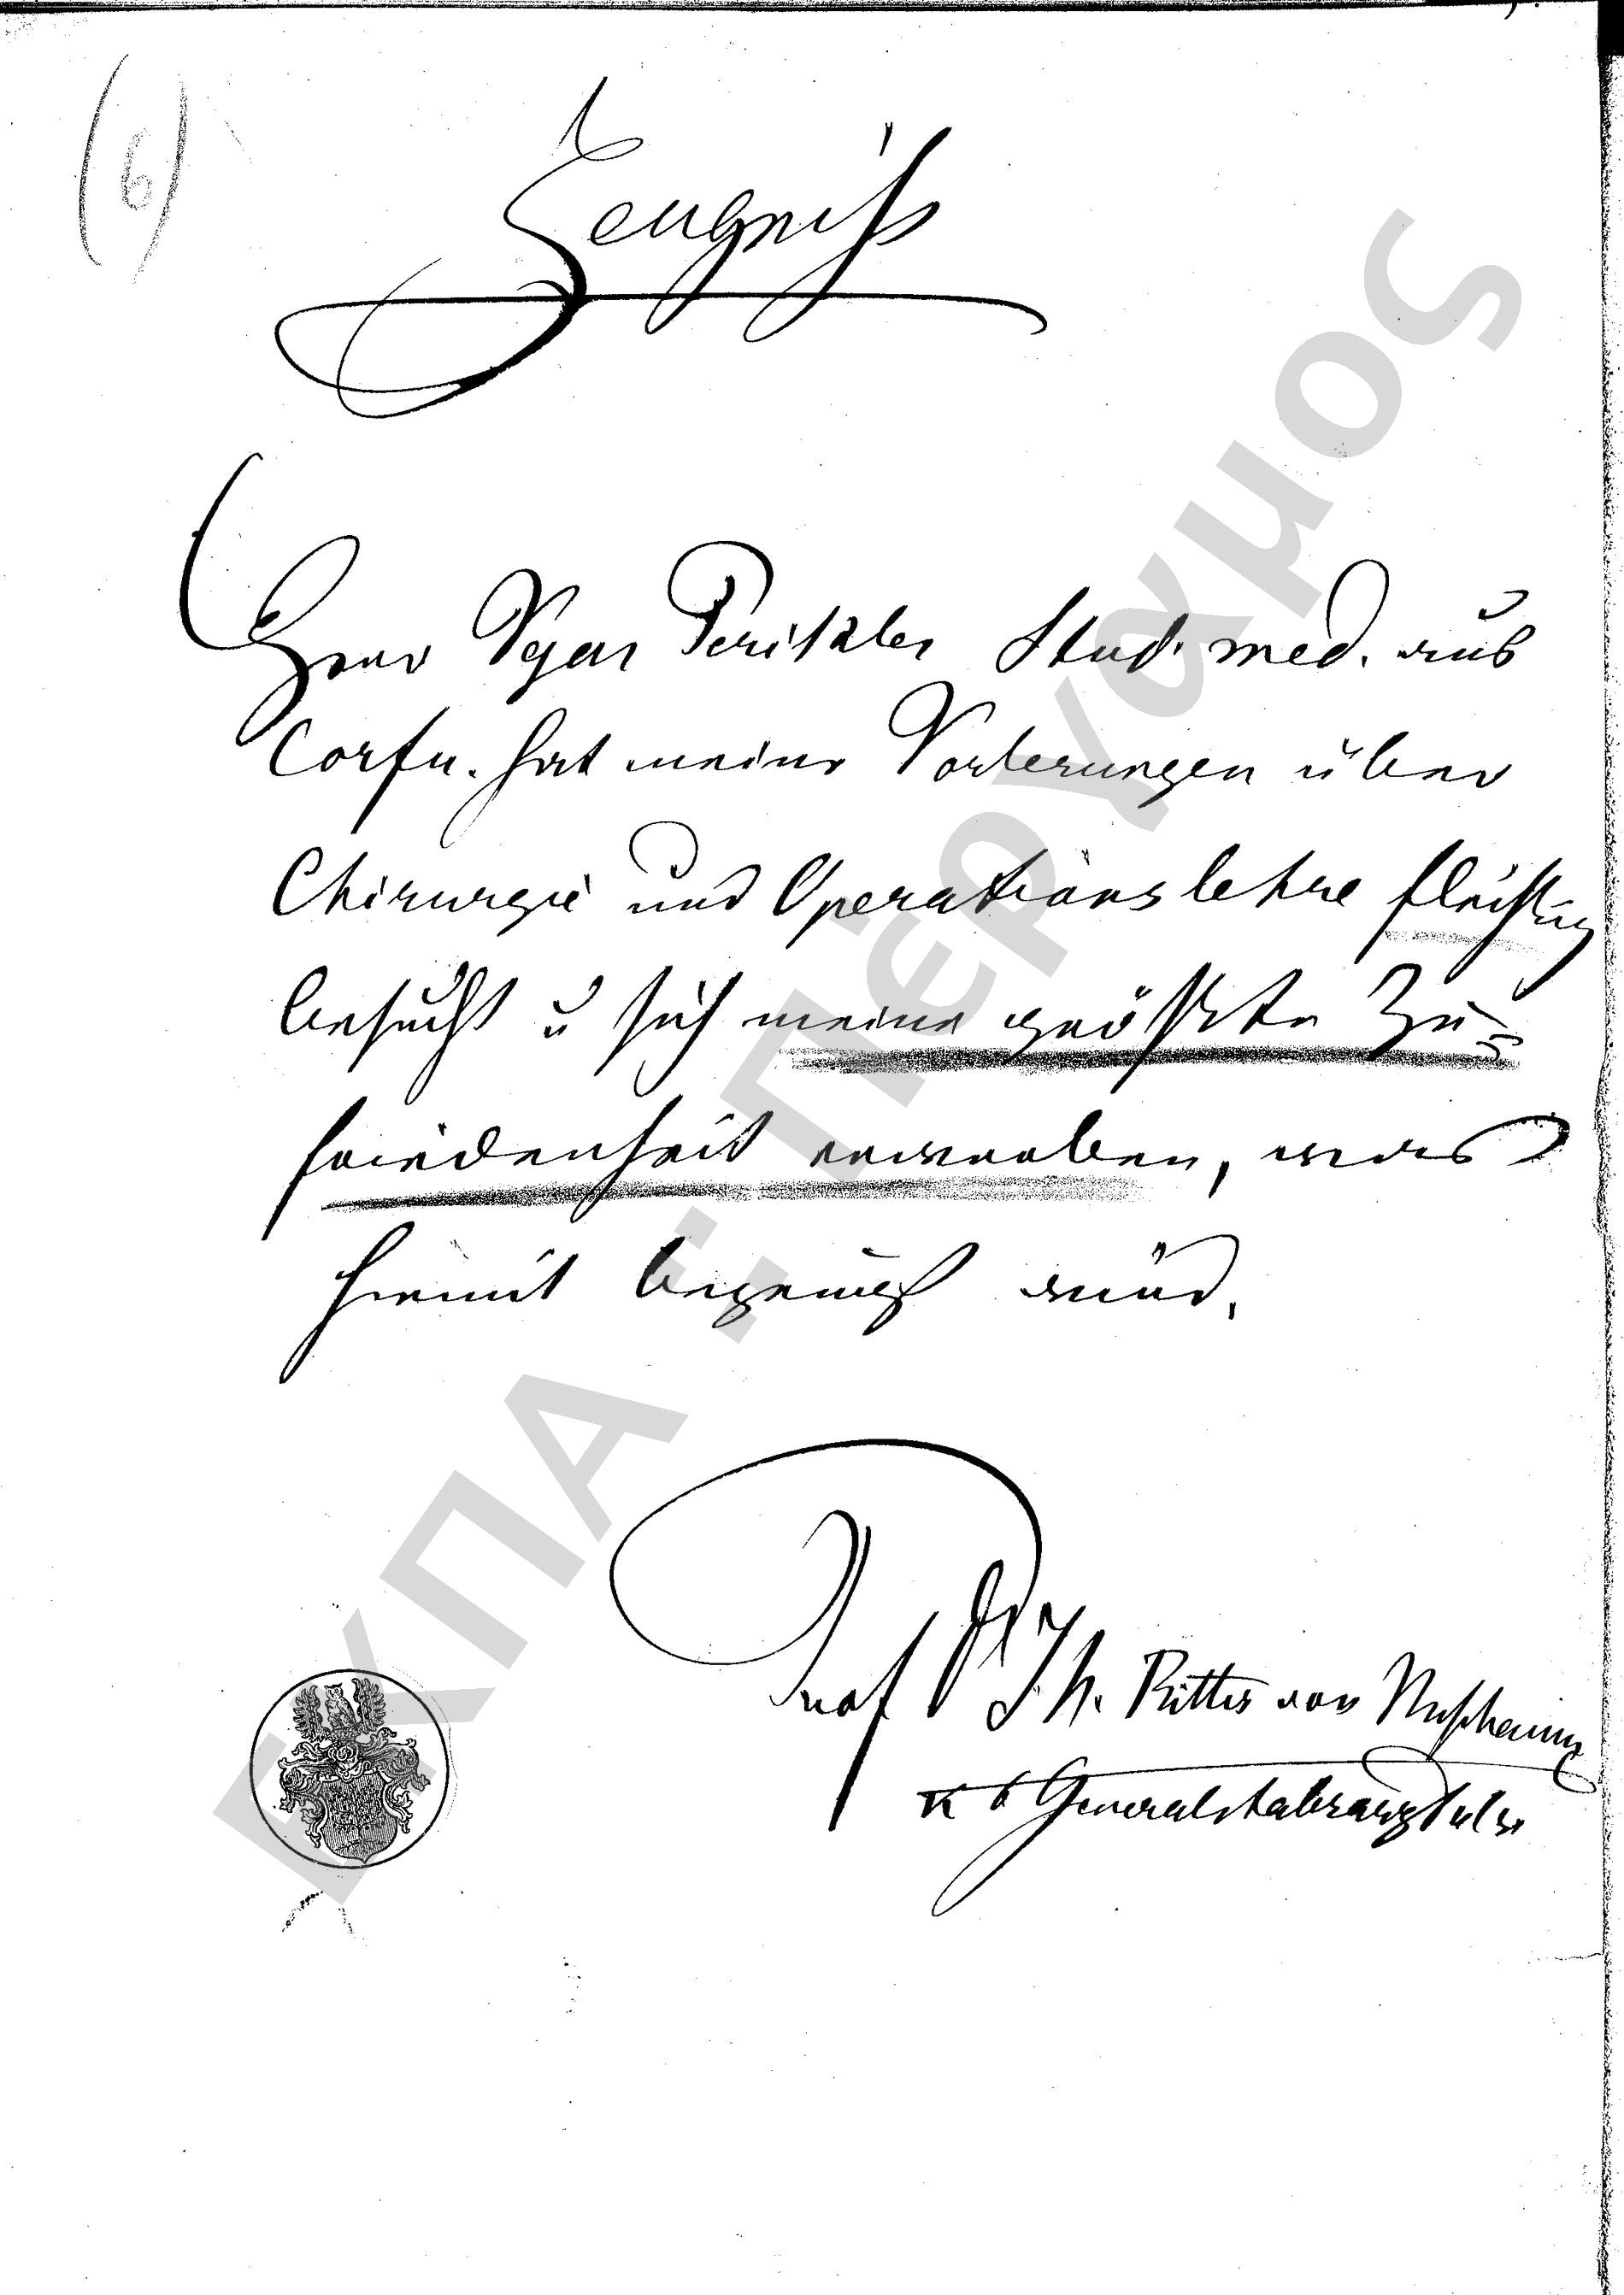 (6)
Zeugniß
Herr Vgen Perikles Stud. med. aus
Corfu. hat meine Vorlesungen über
Chirurgie und Operationslehre fleißig
besucht u sich meine größte Zu=
friedenheit erworben, was
hiemit bezeugt wird.
Prof Dr J. N. Ritter von Nußbaum
K b Generalstabsarzt
ΕΚΠΑ - Πέργαμος